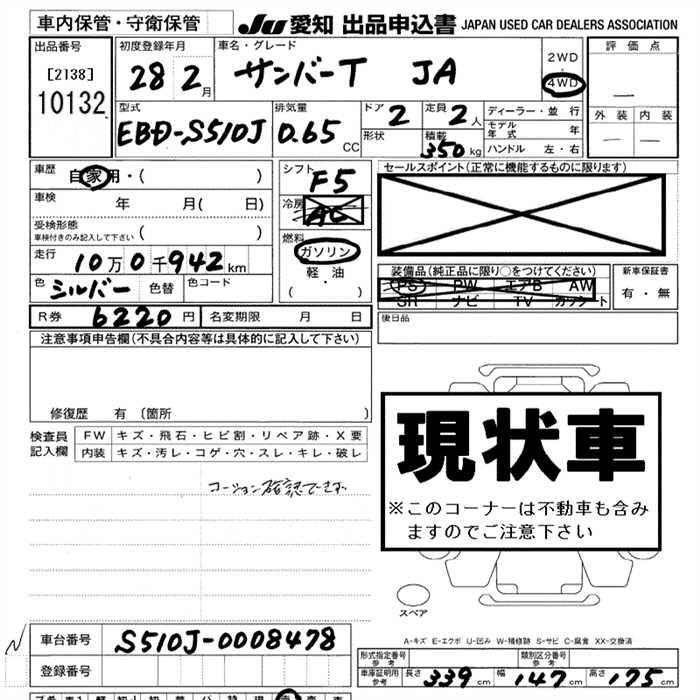 車内保管・守衛保管 JU 愛知 出品申込書 JAPAN USED CAR DEALERS ASSOCIATION
出品番号 初度登録年月 車名・グレード 2WD 評価点
[2138] 28 2月 サンバーT JA ・ 4WD
10132 型式 排気量 ドア 2 定員 2人 ディーラー・並行 外装 内装
EBD-S510J 0.65 CC 形状 積載 350kg モデル年式 年
ハンドル 左・右
車歴 自家用・( ) シフト F5 セールスポイント(正常に機能するものに限ります)
車検 年 月( 日) 冷房 AC
受検形態
車検付きのみ記入して下さい ( ) 燃料 ガソリン
走行 10万0千942km 軽・油 装備品(純正品に限り○をつけてください) 新車保証書
色 シルバー 色替 色コード ( ・ ) (PS) PW エアB AW 有・無
SR ナビ TV カワシート
R券 6220円 名変期限 月 日 後日品
注意事項申告欄(不具合内容等は具体的に記入して下さい)
修復歴 有 (箇所 )
現状車
※このコーナーは不動車も含み
ますのでご注意下さい
検査員 FW キズ・飛石・ヒビ割・リペア跡・X要
記入欄 内装 キズ・汚レ・コゲ・穴・スレ・キレ・破レ
コーション確認できず
スペア
A-キズ E-エクボ U-凹み W-補修跡 S-サビ C-腐食 XX-交換済
車台番号 S510J-0008478 形式指定番号 参考 類別区分番号 参考
登録番号 車庫証明用 参考 長さ 339cm 幅 147cm 高さ 175cm